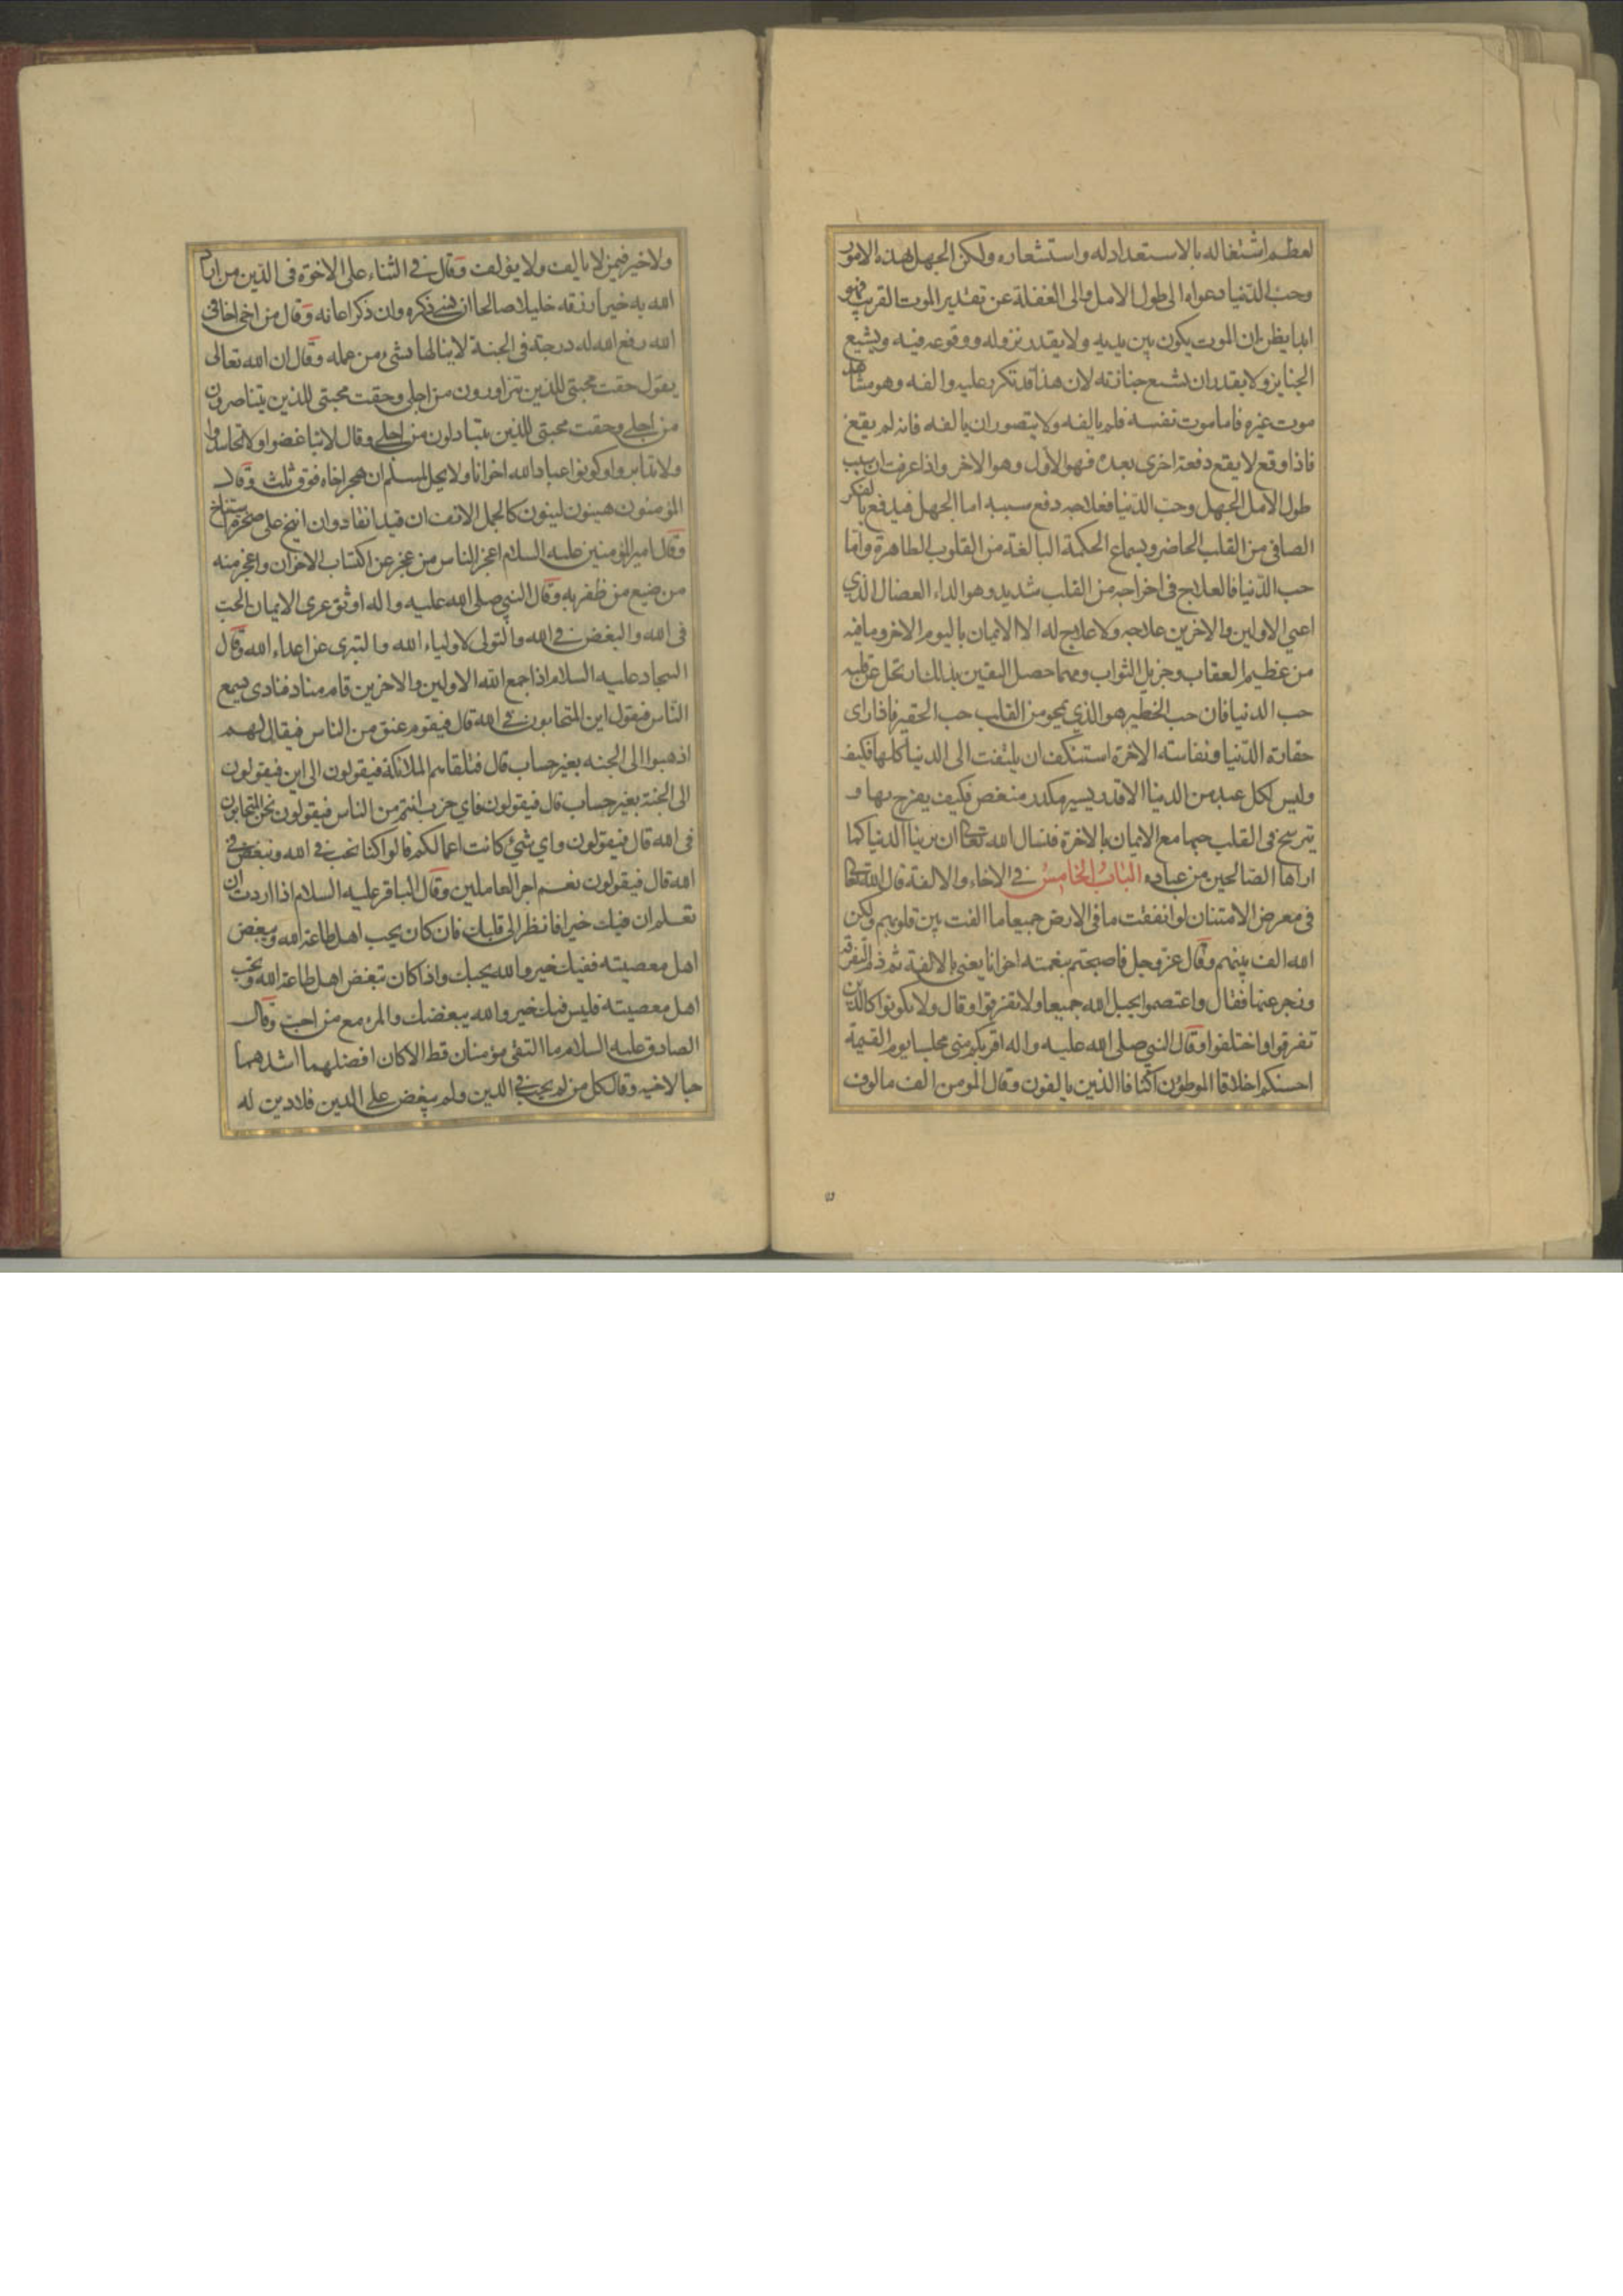 لعظم اشتغاله بالاستعداد له واستشعاره ولكن الجهل بهذه الامور
وحب الدنيا دعواه الى طول الامل والى الغفلة عن تقدير الموت القريب فهو
ابدا يظن ان الموت يكون بين يديه ولا يقدر نزوله ووقوعه فيه ويشيع
الجنايز ولا يقدر ان تشيع جنازته لان هذا قد تكرر عليه والفه وهو مشاهد
موت غيره فاما موت نفسه فلم يالفه ولا يتصور ان يالفه فانه لم يقع
فاذا وقع لا يقع دفعة اخرى بعده فهو الاول وهو الاخر واذا عرفت ان سبب
طول الامل الجهل وحب الدنيا فعلاجه دفع سببه اما الجهل فيدفع بالفكر
الصافى من القلب الحاضر وبسماع الحكمة البالغة من القلوب الطاهرة واما
حب الدنيا فالعلاج فى اخراجه من القلب شديد وهو الداء العضال الذي
اعيى الاولين والاخرين علاجه ولا علاج له الا الايمان باليوم الاخر وما فيه
من عظيم العقاب وجزيل الثواب ومهما حصل اليقين بذلك ارتحل عن قلبه
حب الدنيا فان حب الخطير هو الذي يمحو من القلب حب الحقير فاذا راى
حقارة الدنيا ونفاسة الاخرة استنكف ان يلتفت الى الدنيا كلها فكيف
وليس لكل عبد من الدنيا الا قدر يسير مكدر منغص فكيف يفرح بها و
يترسخ فى القلب حبها مع الايمان بالاخرة فنسال الله تعالى ان يرينا الدنيا كما
اراها الصالحين من عباده الباب الخامس في الاخاء والالفة قال الله تعالى
فى معرض الامتنان لو انفقت ما فى الارض جميعا ما الفت بين قلوبهم ولكن
الله الف بينهم وقال عز وجل فاصبحتم بنعمته اخوانا يعنى بالالفة ثم ذم التفرقة
وزجر عنها فقال واعتصموا بحبل الله جميعا ولا تفرقوا وقال ولا تكونوا كالذين
تفرقوا واختلفوا وقال النبي صلى الله عليه واله اقربكم منى مجلسا يوم القيمة
احسنكم اخلاقا الموطؤن اكنافا الذين يالفون وقال المومن الف مالوف
ولا خير فيمن لا يالف ولا يؤلف وقال في الثناء على الاخوة فى الدين من اراد
الله به خيرا رزقه خليلا صالحا ان نسي ذكره وان ذكر اعانه وقال من اخى اخا فى
الله رفع الله له درجة فى الجنة لا ينالها بشىء من عمله وقال ان الله تعالى
يقول حقت محبتى للذين تزاورون من اجلى وحقت محبتى للذين يتناصرون
من اجلى وحقت محبتى للذين يتبادلون من اجلى وقال لا تباغضوا ولا تحاسدوا
ولا تدابروا وكونوا عباد الله اخوانا ولا يحل لمسلم ان يهجر اخاه فوق ثلث وقال
المؤمنون هينون لينون كالجمل الانف ان قيد انقاد وان انيخ على صخرة استناخ
وقال امير المؤمنين عليه السلام اعجز الناس من عجز عن اكتساب الاخوان واعجز منه
من ضيع من ظفر به وقال النبي صلى الله عليه واله اوثق عرى الايمان الحب
فى الله والبغض في الله والتولى لاولياء الله والتبرى عن اعداء الله وقال
السجاد عليه السلام اذا جمع الله الاولين والاخرين قام مناد فنادى يسمع
الناس فيقول اين المتحابون في الله قال فيقوم عنق من الناس فيقال لهم
اذهبوا الى الجنه بغير حساب قال فتلقاهم الملائكة فيقولون الى اين فيقولون
الى الجنة بغير حساب قال فيقولون فاي حزب انتم من الناس فيقولون نحن المتحابون
فى الله قال فيقولون واي شئ كانت اعمالكم قالوا كنا نحب في الله ونبغض في
الله قال فيقولون نعم اجر العاملين وقال الباقر عليه السلام اذا اردت ان
تعلم ان فيك خيرا فانظر الى قلبك فان كان يحب اهل طاعة الله ويبغض
اهل معصيته ففيك خير والله يحبك واذا كان تبغض اهل طاعة الله وتحب
اهل معصيته فليس فيك خير والله يبغضك والمرء مع من احب وقال
الصادق عليه السلام ما التقى مؤمنان قط الا كان افضلهما اشدهما
حبا لاخيه وقال كل من لم يحب في الدين ولم يبغض على الدين فلا دين له